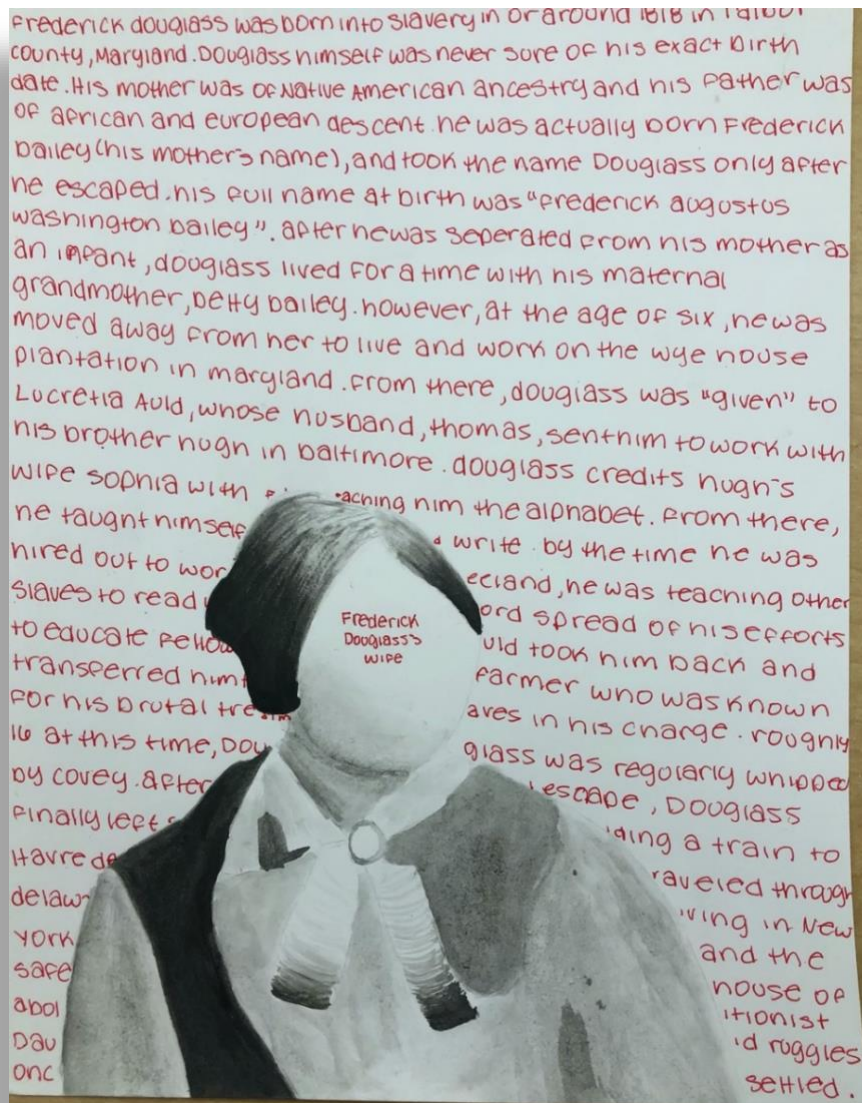 Frederick douglass was born into slavery in or around 1818 in Talbot
county, Maryland. Douglass himself was never sure of his exact birth
date. His mother was of Native American ancestry and his father was
of african and european descent. he was actually born Frederick
bailey (his mother's name), and took the name Douglass only after
he escaped. his full name at birth was "frederick augustus
washington bailey". after he was seperated from his mother as
an infant, douglass lived for a time with his maternal
grandmother, betty bailey. however, at the age of six, he was
moved away from her to live and work on the wye house
plantation in maryland. from there, douglass was "given" to
Lucretia Auld, whose husband, thomas, sent him to work with
his brother hugh in baltimore. douglass credits hugh's
wife sophia with aching him the alphabet. from there,
he taught himself write. by the time he was
hired out to wor eeland, he was teaching other
slaves to read ord spread of his efforts
to educate fellow uld took him back and
transferred him farmer who was known
for his brutal tre aves in his charge. roughly
16 at this time, Dou glass was regularly whipped
by covey. after escape, Douglass
finally left ding a train to
Havre de raveled through
delaw ving in New
york and the
safe house of
abol itionist
Dav id ruggles
onc settled.
Frederick
Douglass's
wife